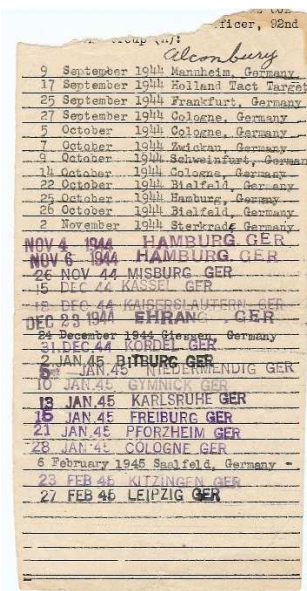 ficer, 92nd
Group (H):
Alconbury
9 September 1944 Mannheim, Germany
17 September 1944 Holland Tact Target
25 September 1944 Frankfurt, Germany
27 September 1944 Cologne, Germany
5 October 1944 Cologne, Germany
7 October 1944 Zwickau, Germany
9 October 1944 Schweinfurt, German
14 October 1944 Cologne, Germany
22 October 1944 Bielfeld, Germany
25 October 1944 Hamburg, Germany
26 October 1944 Bielfeld, Germany
2 November 1944 Sterkrade Germany
NOV 4 1944 HAMBURG. GER
NOV 6 1944 HAMBURG. GER
26 NOV 44 MISBURG GER
15 DEC 44 KASSEL GER
18 DEC 44 KAISERSLAUTERN GER
DEC 23 1944 EHRANG GER
24 December 1944 Giessen, Germany
31 DEC.44 KORDEL GER
2 JAN.45 BITBURG GER
5 JAN.45 NIEDERMENDIG GER
10 JAN.45 GYMNICK GER
13 JAN.45 KARLSRUHE GER
15 JAN.45 FREIBURG GER
21 JAN.45 PFORZHEIM GER
28 JAN.45 COLOGNE GER
6 February 1945 Saalfeld, Germany -
23 FEB 45 KITZINGEN GER
27 FEB 45 LEIPZIG GER